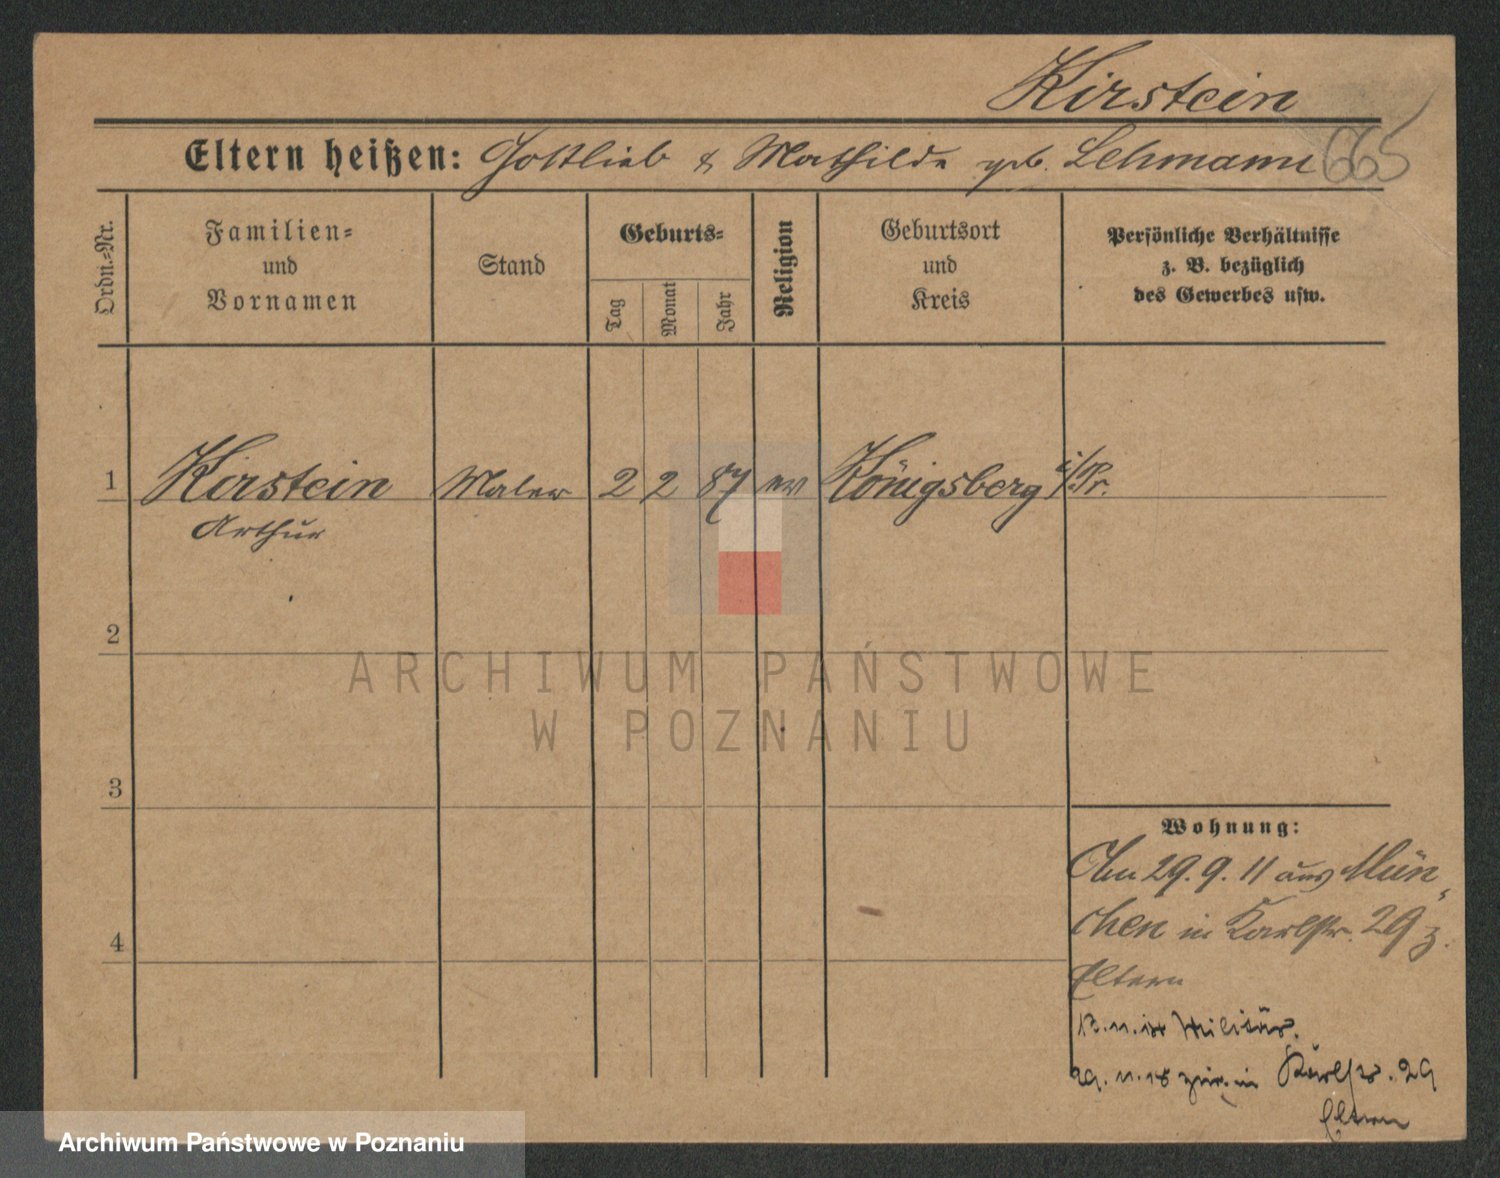 Kirstein
Eltern heißen: Gottlieb & Mathilde geb. Lehmann 665
Ordn.=Nr.
Familien=
und
Vornamen
Stand
Geburts=
Tag
Monat
Jahr
Religion
Geburtsort
und
Kreis
Persönliche Verhältnisse
z. B. bezüglich
des Gewerbes usw.
1 Kirstein Maler 2 2 87 ev Königsberg i/Pr.
Arthur
2
ARCHIWUM PAŃSTWOWE
W POZNANIU
3
Wohnung:
Am 29. 9. 11 aus Mün-
4
chen in Karlstr. 29 z.
Eltern
Militär.
29. 11. 18 zur. in Karlstr. 29
Eltern
Archiwum Państwowe w Poznaniu